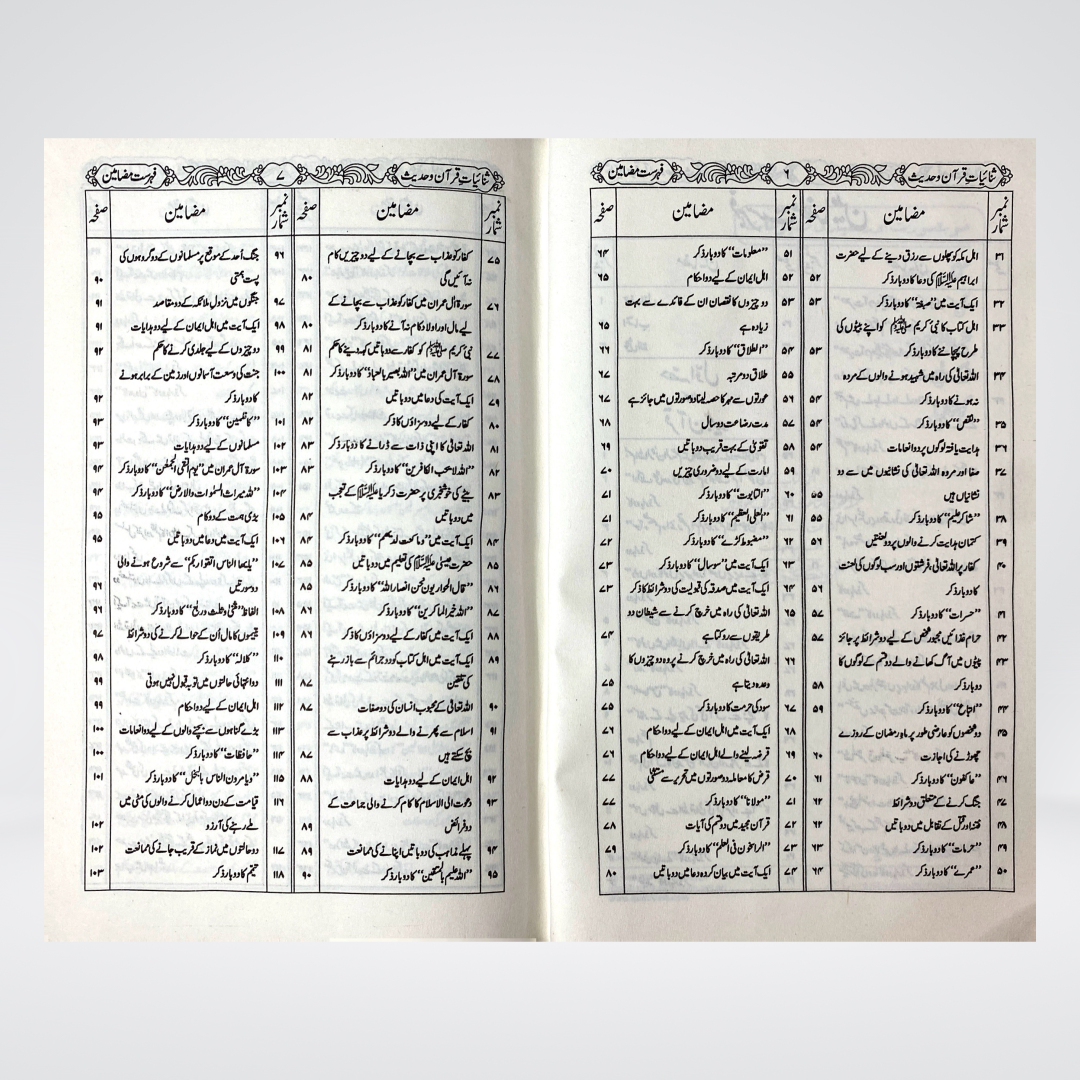 ثنائیات قرآن و حدیث
۶
فہرست مضامین
نمبر شمار
مضامین
صفحہ
نمبر شمار
مضامین
صفحہ
۳۱ اہل مکہ کو پھلوں سے رزق دینے کے لیے حضرت
ابراہیم علیہ السلام کی دعا کا دو بار ذکر ۵۲
۳۲ ایک آیت میں ”صبغۃ“ کا دو بار ذکر ۵۳
۳۳ اہل کتاب کا نبی کریم ﷺ کو اپنے بیٹوں کی
طرح پہچاننے کا دو بار ذکر ۵۳
۳۴ اللہ تعالیٰ کی راہ میں شہید ہونے والوں کے مردہ
نہ ہونے کا دو بار ذکر ۵۴
۳۵ ”نقص“ کا دو بار ذکر ۵۴
۳۶ ہدایت یافتہ لوگوں پر دو انعامات ۵۴
۳۷ صفا اور مروہ اللہ تعالیٰ کی نشانیوں میں سے دو
نشانیاں ہیں ۵۵
۳۸ ”شاکر علیم“ کا دو بار ذکر ۵۵
۳۹ کتمان ہدایت کرنے والوں پر دو لعنتیں ۵۶
۴۰ کفار پر اللہ تعالیٰ، فرشتوں اور سب لوگوں کی لعنت
کا دو بار ذکر ۵۶
۴۱ ”حسرات“ کا دو بار ذکر ۵۷
۴۲ حرام غذائیں مجبور شخص کے لیے دو شرائط پر جائز ۵۷
۴۳ پیٹوں میں آگ کھانے والے دو قسم کے لوگوں کا
دو بار ذکر ۵۸
۴۴ ”اتباع“ کا دو بار ذکر ۵۹
۴۵ دو شخصوں کو عارضی طور پر ماہ رمضان کے روزے
چھوڑنے کی اجازت ۶۰
۴۶ ”عاکفون“ کا دو بار ذکر ۶۱
۴۷ جنگ کرنے کے متعلق دو شرائط ۶۲
۴۸ فتنہ اور قتل کے تقابل میں دو باتیں ۶۲
۴۹ ”حرمات“ کا دو بار ذکر ۶۳
۵۰ ”عمرے“ کا دو بار ذکر ۶۴
۵۱ ”معلومات“ کا دو بار ذکر ۶۴
۵۲ اہل ایمان کے لیے دو احکام ۶۵
۵۳ دو چیزوں کا نقصان ان کے فائدے سے بہت
زیادہ ہے ۶۵
۵۴ ”الطلاق“ کا دو بار ذکر ۶۶
۵۵ طلاق دو مرتبہ ۶۷
۵۶ عورتوں سے مہر کا حصہ لینا دو صورتوں میں جائز ہے ۶۷
۵۷ مدت رضاعت دو سال ۶۸
۵۸ تقویٰ کے بہت قریب دو باتیں ۶۹
۵۹ امارت کے لیے دو ضروری چیزیں ۷۰
۶۰ ”التابوت“ کا دو بار ذکر ۷۱
۶۱ ”العلی العظیم“ کا دو بار ذکر ۷۱
۶۲ ”مضبوط کڑے“ کا دو بار ذکر ۷۲
۶۳ ایک آیت میں ”سو سال“ کا دو بار ذکر ۷۳
۶۴ ایک آیت میں صدقہ کی قبولیت کی دو شرائط کا ذکر ۷۳
۶۵ اللہ تعالیٰ کی راہ میں خرچ کرنے سے شیطان دو
طریقوں سے روکتا ہے ۷۴
۶۶ اللہ تعالیٰ کی راہ میں خرچ کرنے پر وہ دو چیزوں کا
وعدہ دیتا ہے ۷۵
۶۷ سود کی حرمت کا دو بار ذکر ۷۵
۶۸ ایک آیت میں اہل ایمان کے لیے دو احکام ۷۶
۶۹ قرضہ لینے والے اہل ایمان کے لیے دو احکام ۷۶
۷۰ قرض کا معاملہ دو صورتوں میں تحریر سے مستثنیٰ ۷۷
۷۱ ”مولانا“ کا دو بار ذکر ۷۷
۷۲ قرآن مجید میں دو قسم کی آیات ۷۸
۷۳ ”الراسخون فی العلم“ کا دو بار ذکر ۷۹
۷۴ ایک آیت میں بیان کردہ دعا میں دو باتیں ۸۰
ثنائیات قرآن و حدیث
۷
فہرست مضامین
نمبر شمار
مضامین
صفحہ
نمبر شمار
مضامین
صفحہ
۷۵ کفار کو عذاب سے بچانے کے لیے دو چیزیں کام
نہ آئیں گی ۸۰
۷۶ سورۃ آل عمران میں کفار کو عذاب سے بچانے کے
لیے مال اور اولاد کام نہ آنے کا دو بار ذکر ۸۰
۷۷ نبی کریم ﷺ کو کفار سے دو باتیں کہہ دینے کا حکم ۸۱
۷۸ سورۃ آل عمران میں ”اللہ بصیر بالعباد“ کا دو بار ذکر ۸۱
۷۹ ایک آیت کی دعا میں دو باتیں ۸۲
۸۰ کفار کے لیے دو سزاؤں کا ذکر ۸۲
۸۱ اللہ تعالیٰ کا اپنی ذات سے ڈرانے کا دو بار ذکر ۸۳
۸۲ ”اللہ لا یحب الکافرین“ کا دو بار ذکر ۸۳
۸۳ بیٹے کی خوشخبری پر حضرت زکریا علیہ السلام کے تعجب
میں دو باتیں ۸۴
۸۴ ایک آیت میں ”وما کنت لدیھم“ کا دو بار ذکر ۸۴
۸۵ حضرت عیسیٰ علیہ السلام کی تعلیم میں دو باتیں ۸۵
۸۶ ”قال الحواریون نحن انصار اللہ“ کا دو بار ذکر ۸۵
۸۷ ”اللہ خیر الماکرین“ کا دو بار ذکر ۸۶
۸۸ ایک آیت میں کفار کے لیے دو سزاؤں کا ذکر ۸۶
۸۹ ایک آیت میں اہل کتاب کو دو جرائم سے باز رہنے
کی تلقین ۸۷
۹۰ اللہ تعالیٰ کے محبوب انسان کی دو صفات ۸۷
۹۱ اسلام سے پھرنے والے دو شرائط پر عذاب سے
بچ سکتے ہیں ۸۷
۹۲ اہل ایمان کے لیے دو ہدایات ۸۸
۹۳ دعوت الی الاسلام کا کام کرنے والی جماعت کے
دو فرائض ۸۹
۹۴ پہلے مذاہب کی دو باتیں اپنانے کی ممانعت ۸۹
۹۵ ”اللہ علیم بالمتقین“ کا دو بار ذکر ۹۰
۹۶ جنگ اُحد کے موقع پر مسلمانوں کے دو گروہوں کی
پست ہمتی ۹۰
۹۷ جنگوں میں نزول ملائکہ کے دو مقاصد ۹۱
۹۸ ایک آیت میں اہل ایمان کے لیے دو ہدایات ۹۱
۹۹ دو چیزوں کے لیے جلدی کرنے کا حکم ۹۲
۱۰۰ جنت کی وسعت آسمانوں اور زمین کے برابر ہونے
کا دو بار ذکر ۹۲
۱۰۱ ”کاظمین“ کا دو بار ذکر ۹۳
۱۰۲ مسلمانوں کے لیے دو ہدایات ۹۳
۱۰۳ سورۃ آل عمران میں ”یوم التقی الجمعٰن“ کا دو بار ذکر ۹۴
۱۰۴ ”للہ میراث السمٰوات والارض“ کا دو بار ذکر ۹۴
۱۰۵ بڑی ہمت کے دو کام ۹۵
۱۰۶ ایک آیت میں دعا میں دو باتیں ۹۵
۱۰۷ ”یایھا الناس اتقوا ربکم“ سے شروع ہونے والی
دو سورتیں ۹۶
۱۰۸ الفاظ ”مثنٰی وثلٰث وربٰع“ کا دو بار ذکر ۹۶
۱۰۹ یتیموں کا مال اُن کے حوالے کرنے کی دو شرائط ۹۷
۱۱۰ ”کلالہ“ کا دو بار ذکر ۹۸
۱۱۱ دو انتہائی حالتوں میں توبہ قبول نہیں ہوتی ۹۹
۱۱۲ اہل ایمان کے لیے دو احکام ۹۹
۱۱۳ بڑے گناہوں سے بچنے والوں کے لیے دو انعامات ۱۰۰
۱۱۴ ”حافظات“ کا دو بار ذکر ۱۰۰
۱۱۵ ”ویامرون الناس بالبخل“ کا دو بار ذکر ۱۰۱
۱۱۶ قیامت کے دن دو اعمال کرنے والوں کی مٹی میں
ملے رہنے کی آرزو ۱۰۲
۱۱۷ دو حالتوں میں نماز کے قریب جانے کی ممانعت ۱۰۲
۱۱۸ تیمم کا دو بار ذکر ۱۰۳